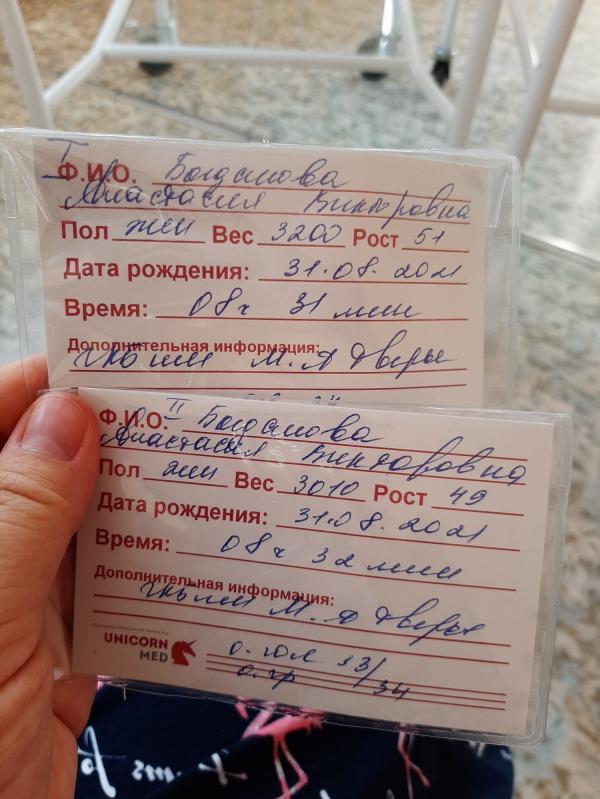 I
Ф.И.О. Богданова
Анастасия Викторовна
Пол жен Вес 3200 Рост 51
Дата рождения: 31.08.2021
Время: 08ч 31 мин
Дополнительная информация:
М.А
II
Ф.И.О. Богданова
Анастасия Викторовна
Пол жен Вес 3010 Рост 49
Дата рождения: 31.08.2021
Время: 08ч 32 мин
Дополнительная информация:
М.А
UNICORN
MED
о. гол 33/
о. гр 34